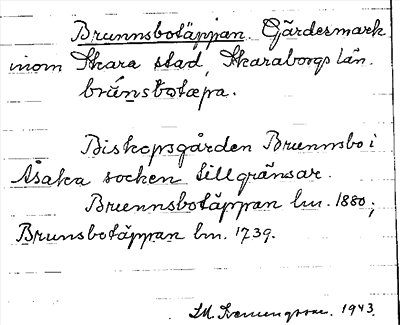 Brunnsbotäppan. Gärdesmark
inom Skara stad, Skaraborgs län.
brúnsbotæpa.
Biskopsgården Brunnsbo i
Åsaka socken tillgränsar.
Brunnsbotäppan lm. 1880;
Brunsbotäppan lm. 1739.
1943.